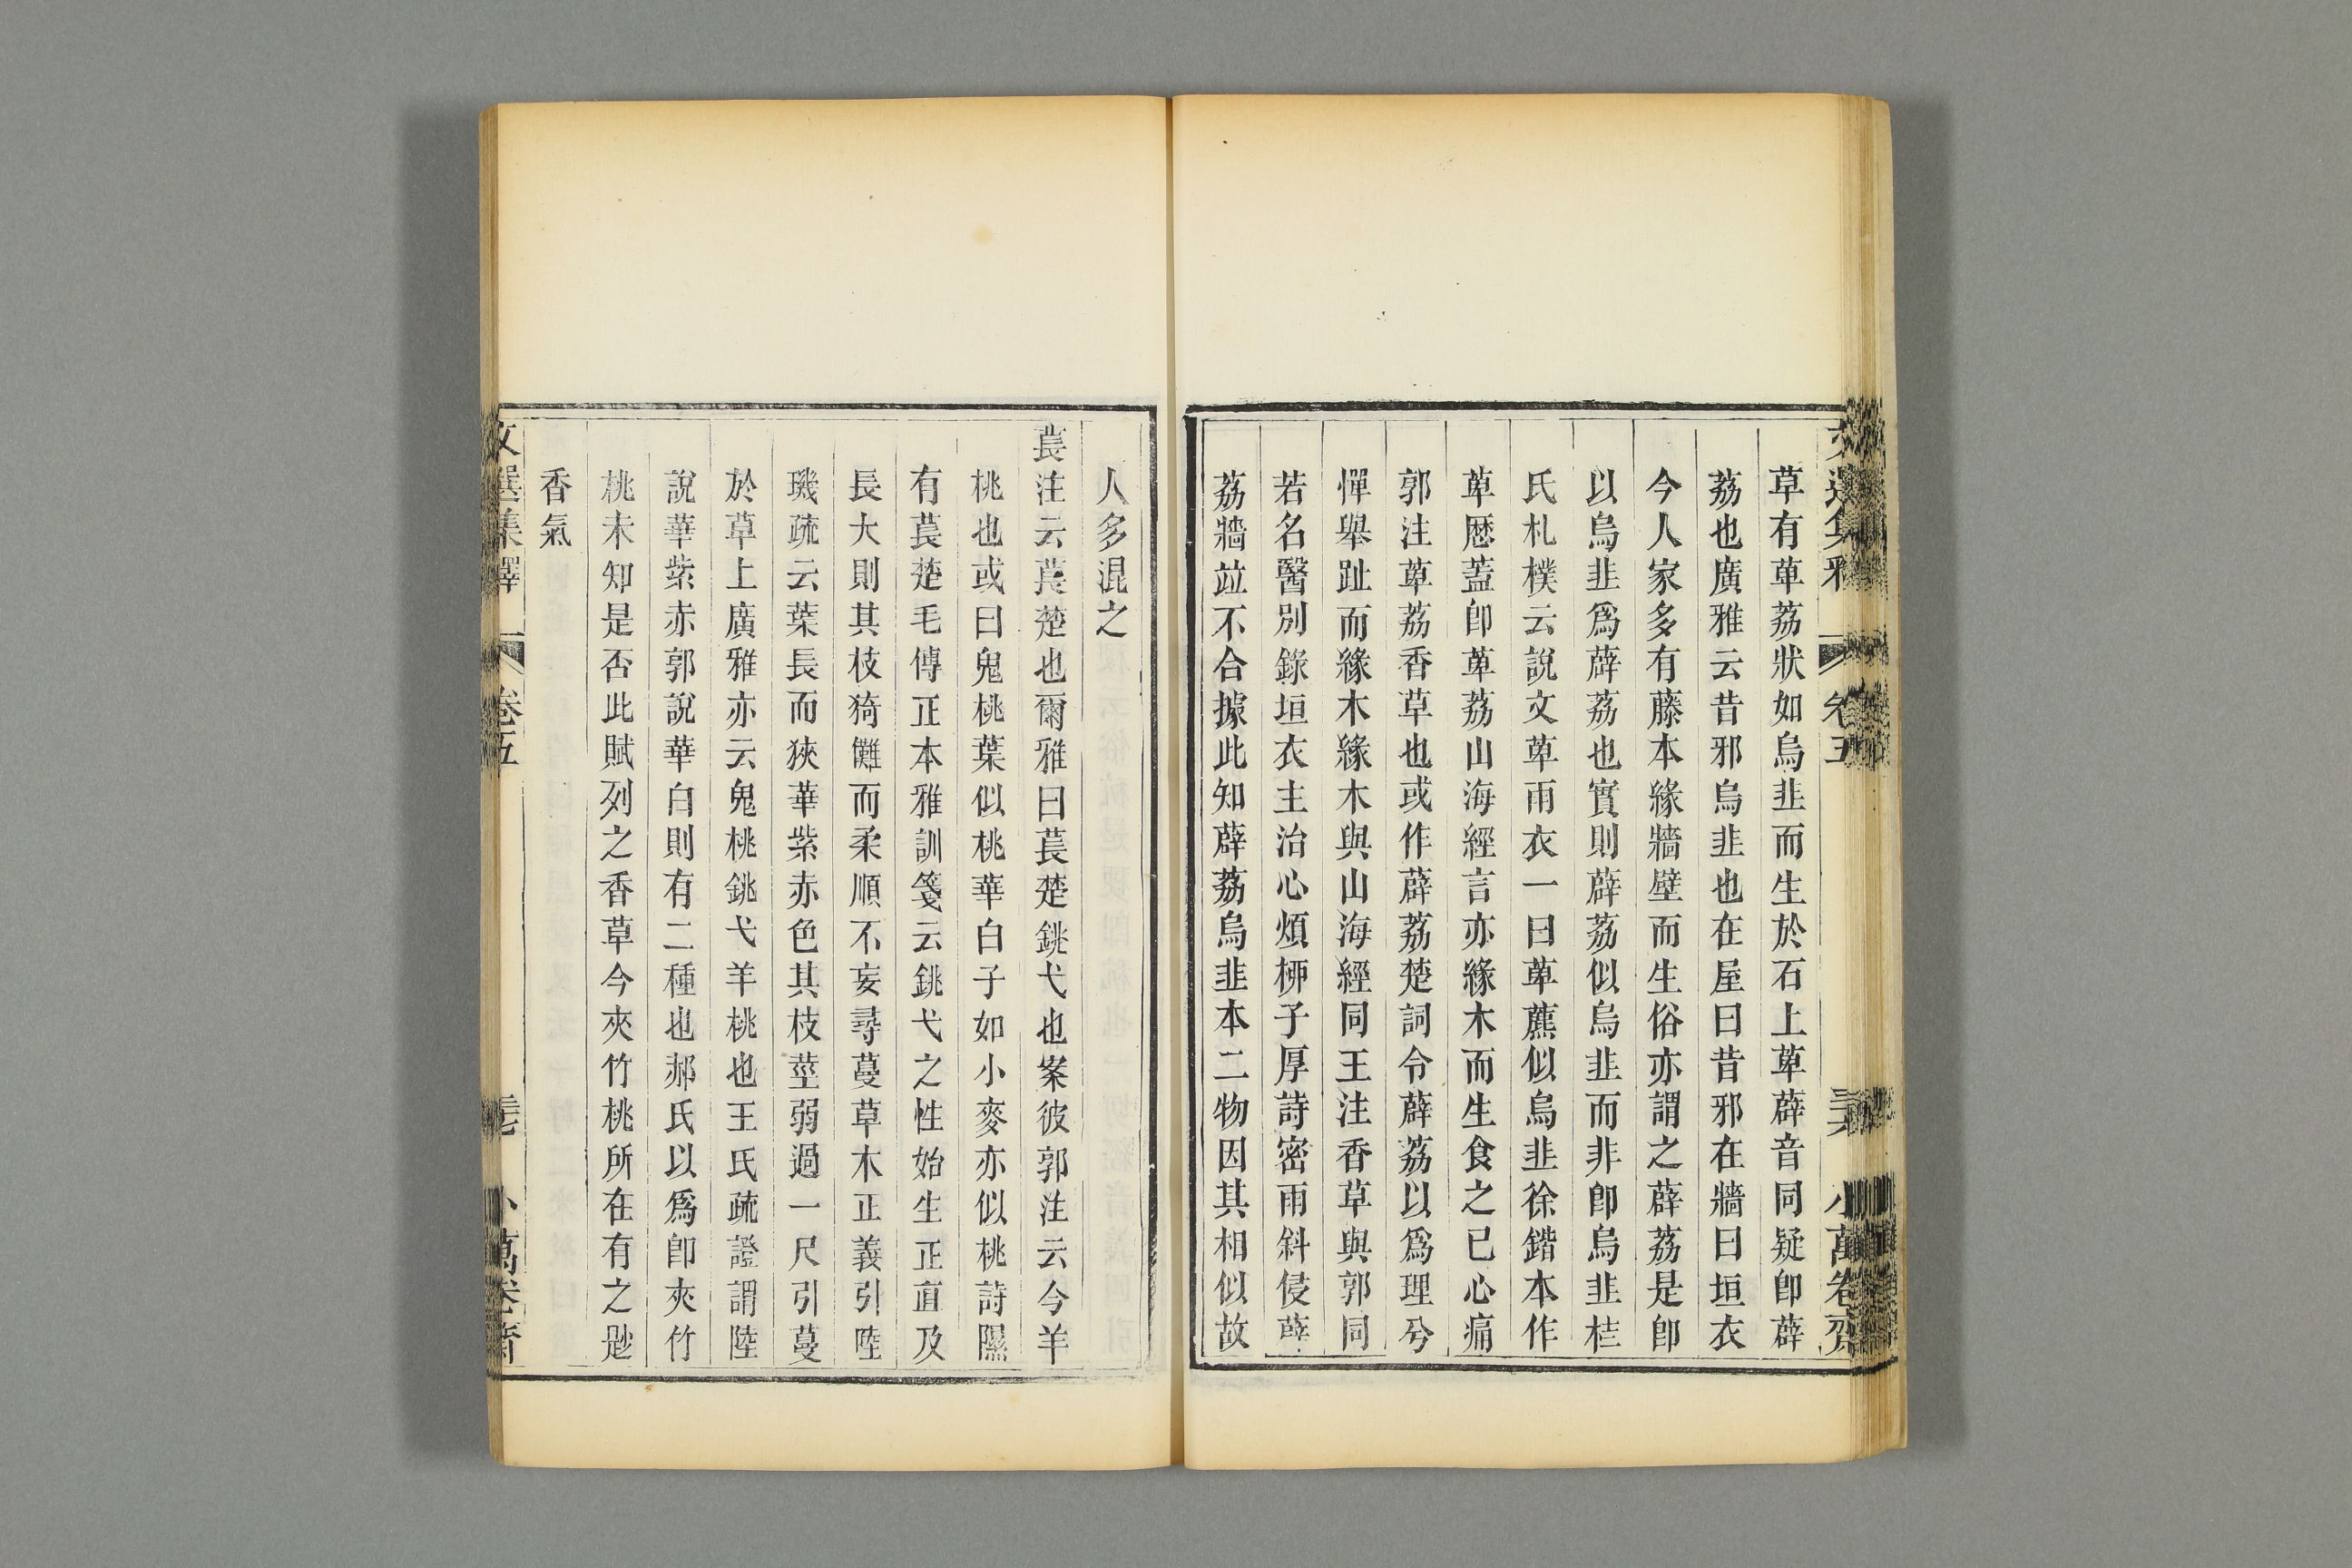 草有萆荔狀如烏韭而生於石上萆薜音同疑卽薜
荔也廣雅云昔邪烏韭也在屋曰昔邪在牆曰垣衣
今人家多有藤本緣牆壁而生俗亦謂之薜荔是卽
以烏韭爲薜荔也實則薜荔似烏韭而非卽烏韭桂
氏札樸云說文萆雨衣一曰萆藨似烏韭徐鍇本作
萆歷蓋卽萆荔山海經言亦緣木而生食之已心痛
郭注萆荔香草也或作薜荔楚詞令薜荔以爲理兮
憚舉趾而緣木緣木與山海經同王注香草與郭同
若名醫別錄垣衣主治心煩柳子厚詩密雨斜侵薜
荔牆竝不合據此知薜荔烏韭本二物因其相似故
文選集釋
卷五
小萬卷齋
人多混之
萇注云萇楚也爾雅曰萇楚銚弋也案彼郭注云今羊
桃也或曰鬼桃葉似桃華白子如小麥亦似桃詩隰
有萇楚毛傳正本雅訓箋云銚弋之性始生正直及
長大則其枝猗儺而柔順不妄尋蔓草木正義引陸
璣疏云葉長而狹華紫赤色其枝莖弱過一尺引蔓
於草上廣雅亦云鬼桃銚弋羊桃也王氏疏證謂陸
說華紫赤郭說華白則有二種也郝氏以爲卽夾竹
桃未知是否此賦列之香草今夾竹桃所在有之尟
香氣
文選集釋
卷五
小萬卷齋